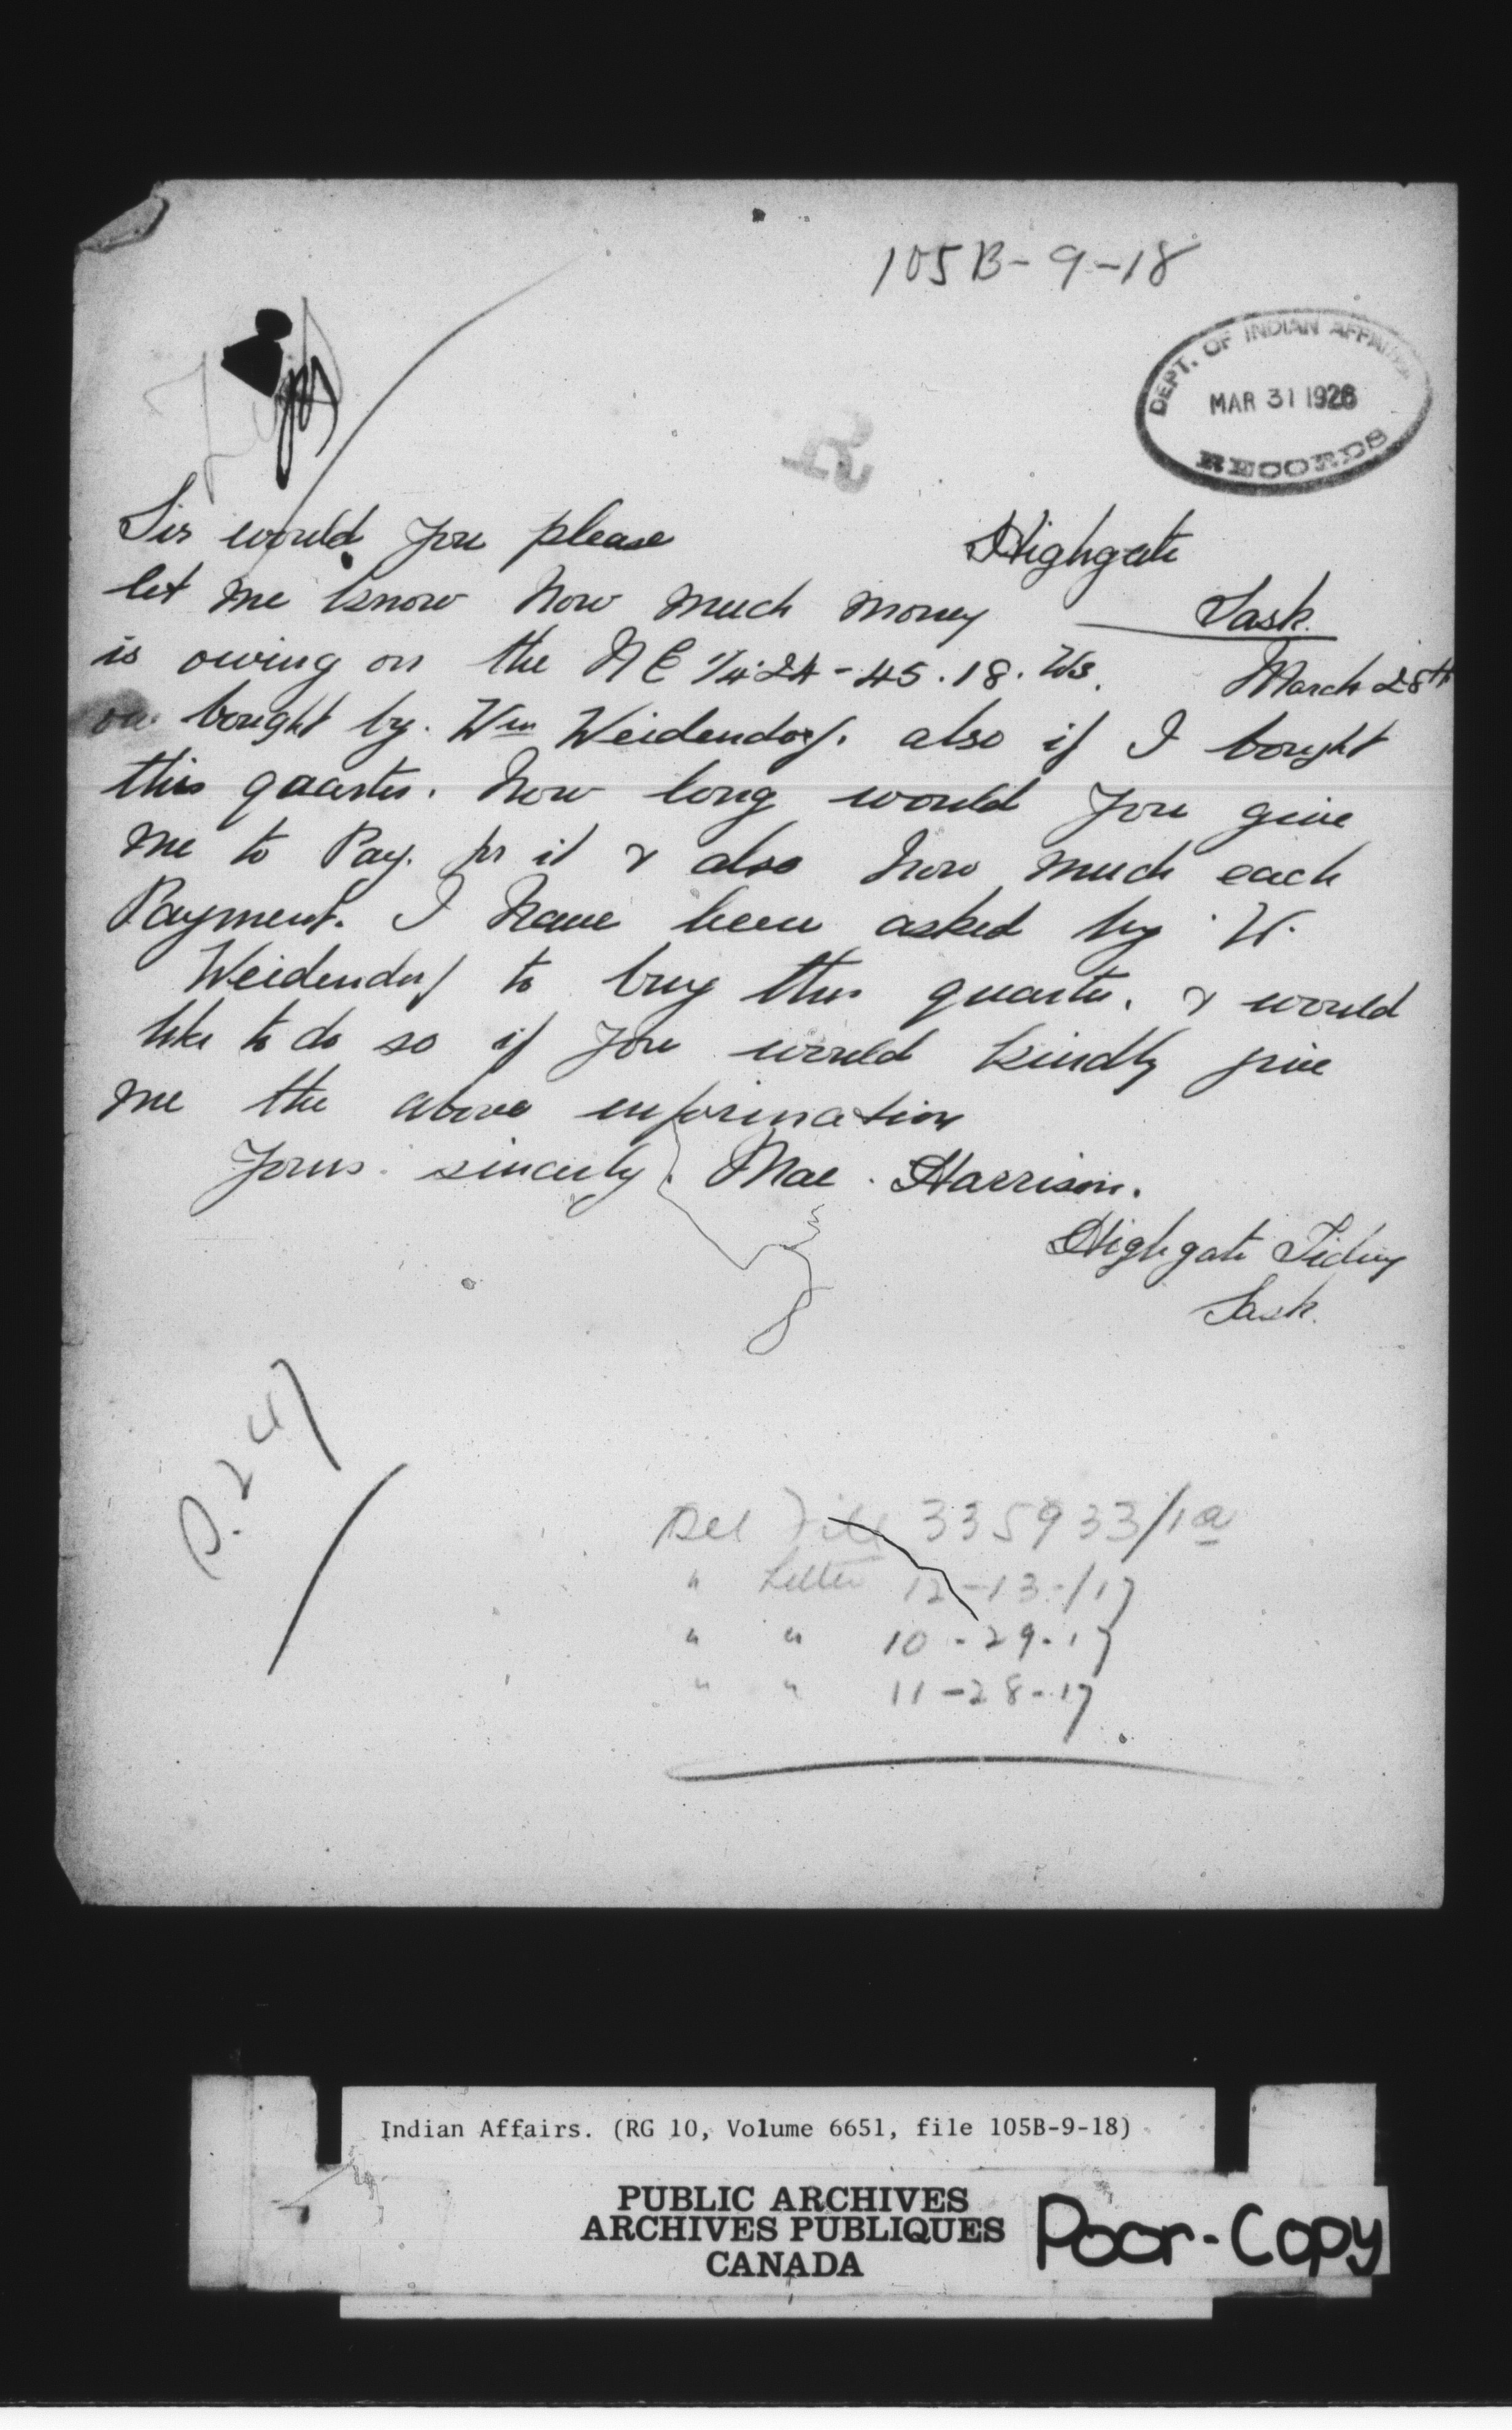 105B-9-18
DEPT. OF INDIAN AFFAIRS
MAR 31 1926
RECORDS
Highgate
Sask.
March 28th
Sir would you please
let me know how much money
is owing on the N E 1/4 24-45.18. W3.
bought by. Wm Weidendorf. also if I bought
this quarter. how long would you give
me to Pay. for it & also how much each
Payment. I have been asked by W.
Weidendorf to buy this quarter. & would
like to do so if you would kindly give
me the above information
Yours sincerely. Mae. Harrison.
Highgate Siding
Sask.
P. 24
See File 335933/1a
" Letter 12-13-/17
" " 10-29-17
" " 11-28-17
Indian Affairs. (RG 10, Volume 6651, file 105B-9-18)
PUBLIC ARCHIVES
ARCHIVES PUBLIQUES
CANADA
Poor-Copy